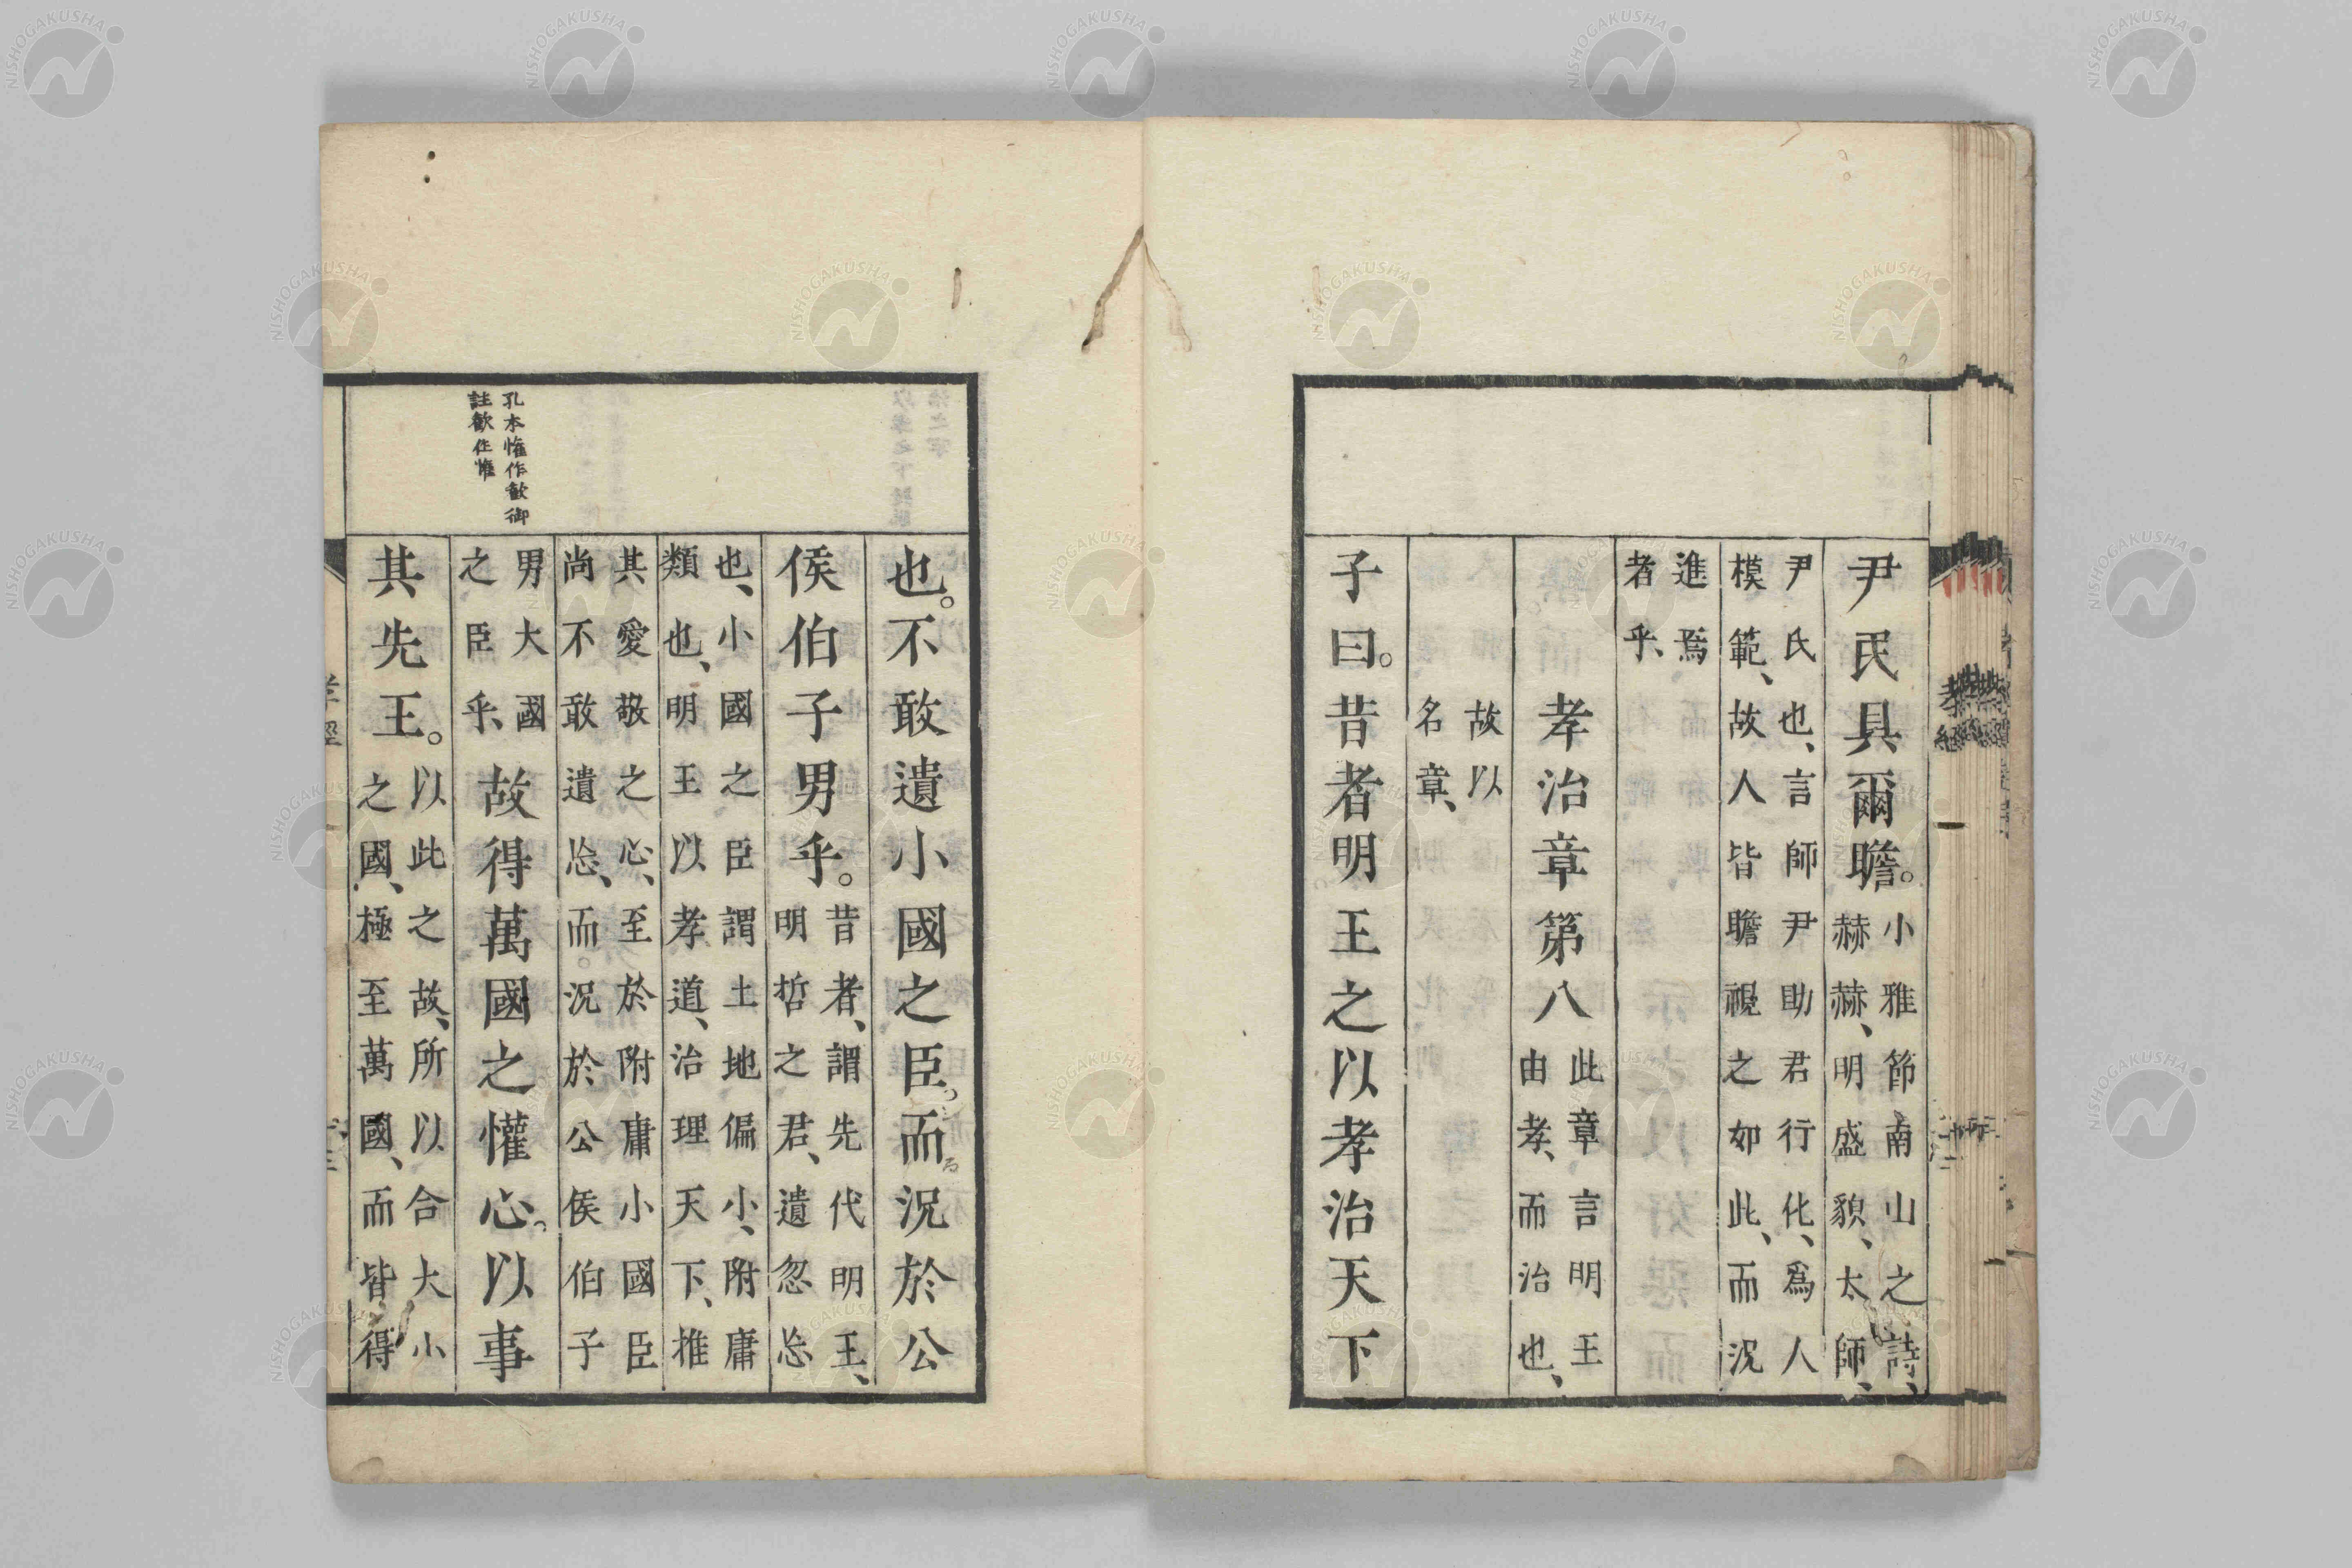 尹氏具爾瞻。小雅節南山之詩、
赫赫、明盛貌、太師、
尹氏也、言師尹助君行化、爲人
模範、故人皆瞻視之如此、而況
進焉
者乎、
孝治章第八此章言明王
由孝、而治也、
故以
名章、
子曰。昔者明王之以孝治天下
也。不敢遺小國之臣。而況於公
侯伯子男乎。昔者、謂先代明王、
明哲之君、遺忽忘
也、小國之臣謂土地偏小、附庸
類也、明王以孝道、治理天下、推
其愛敬之心、至於附庸小國臣
尚不敢遺忘、而況於公侯伯子
男大國
之臣乎、故得萬國之懽心。以事
其先王。以此之故、所以合大小
之國、極至萬國、而皆得
孔本懽作歡御
註歡作懽
NISHOGAKUSHA